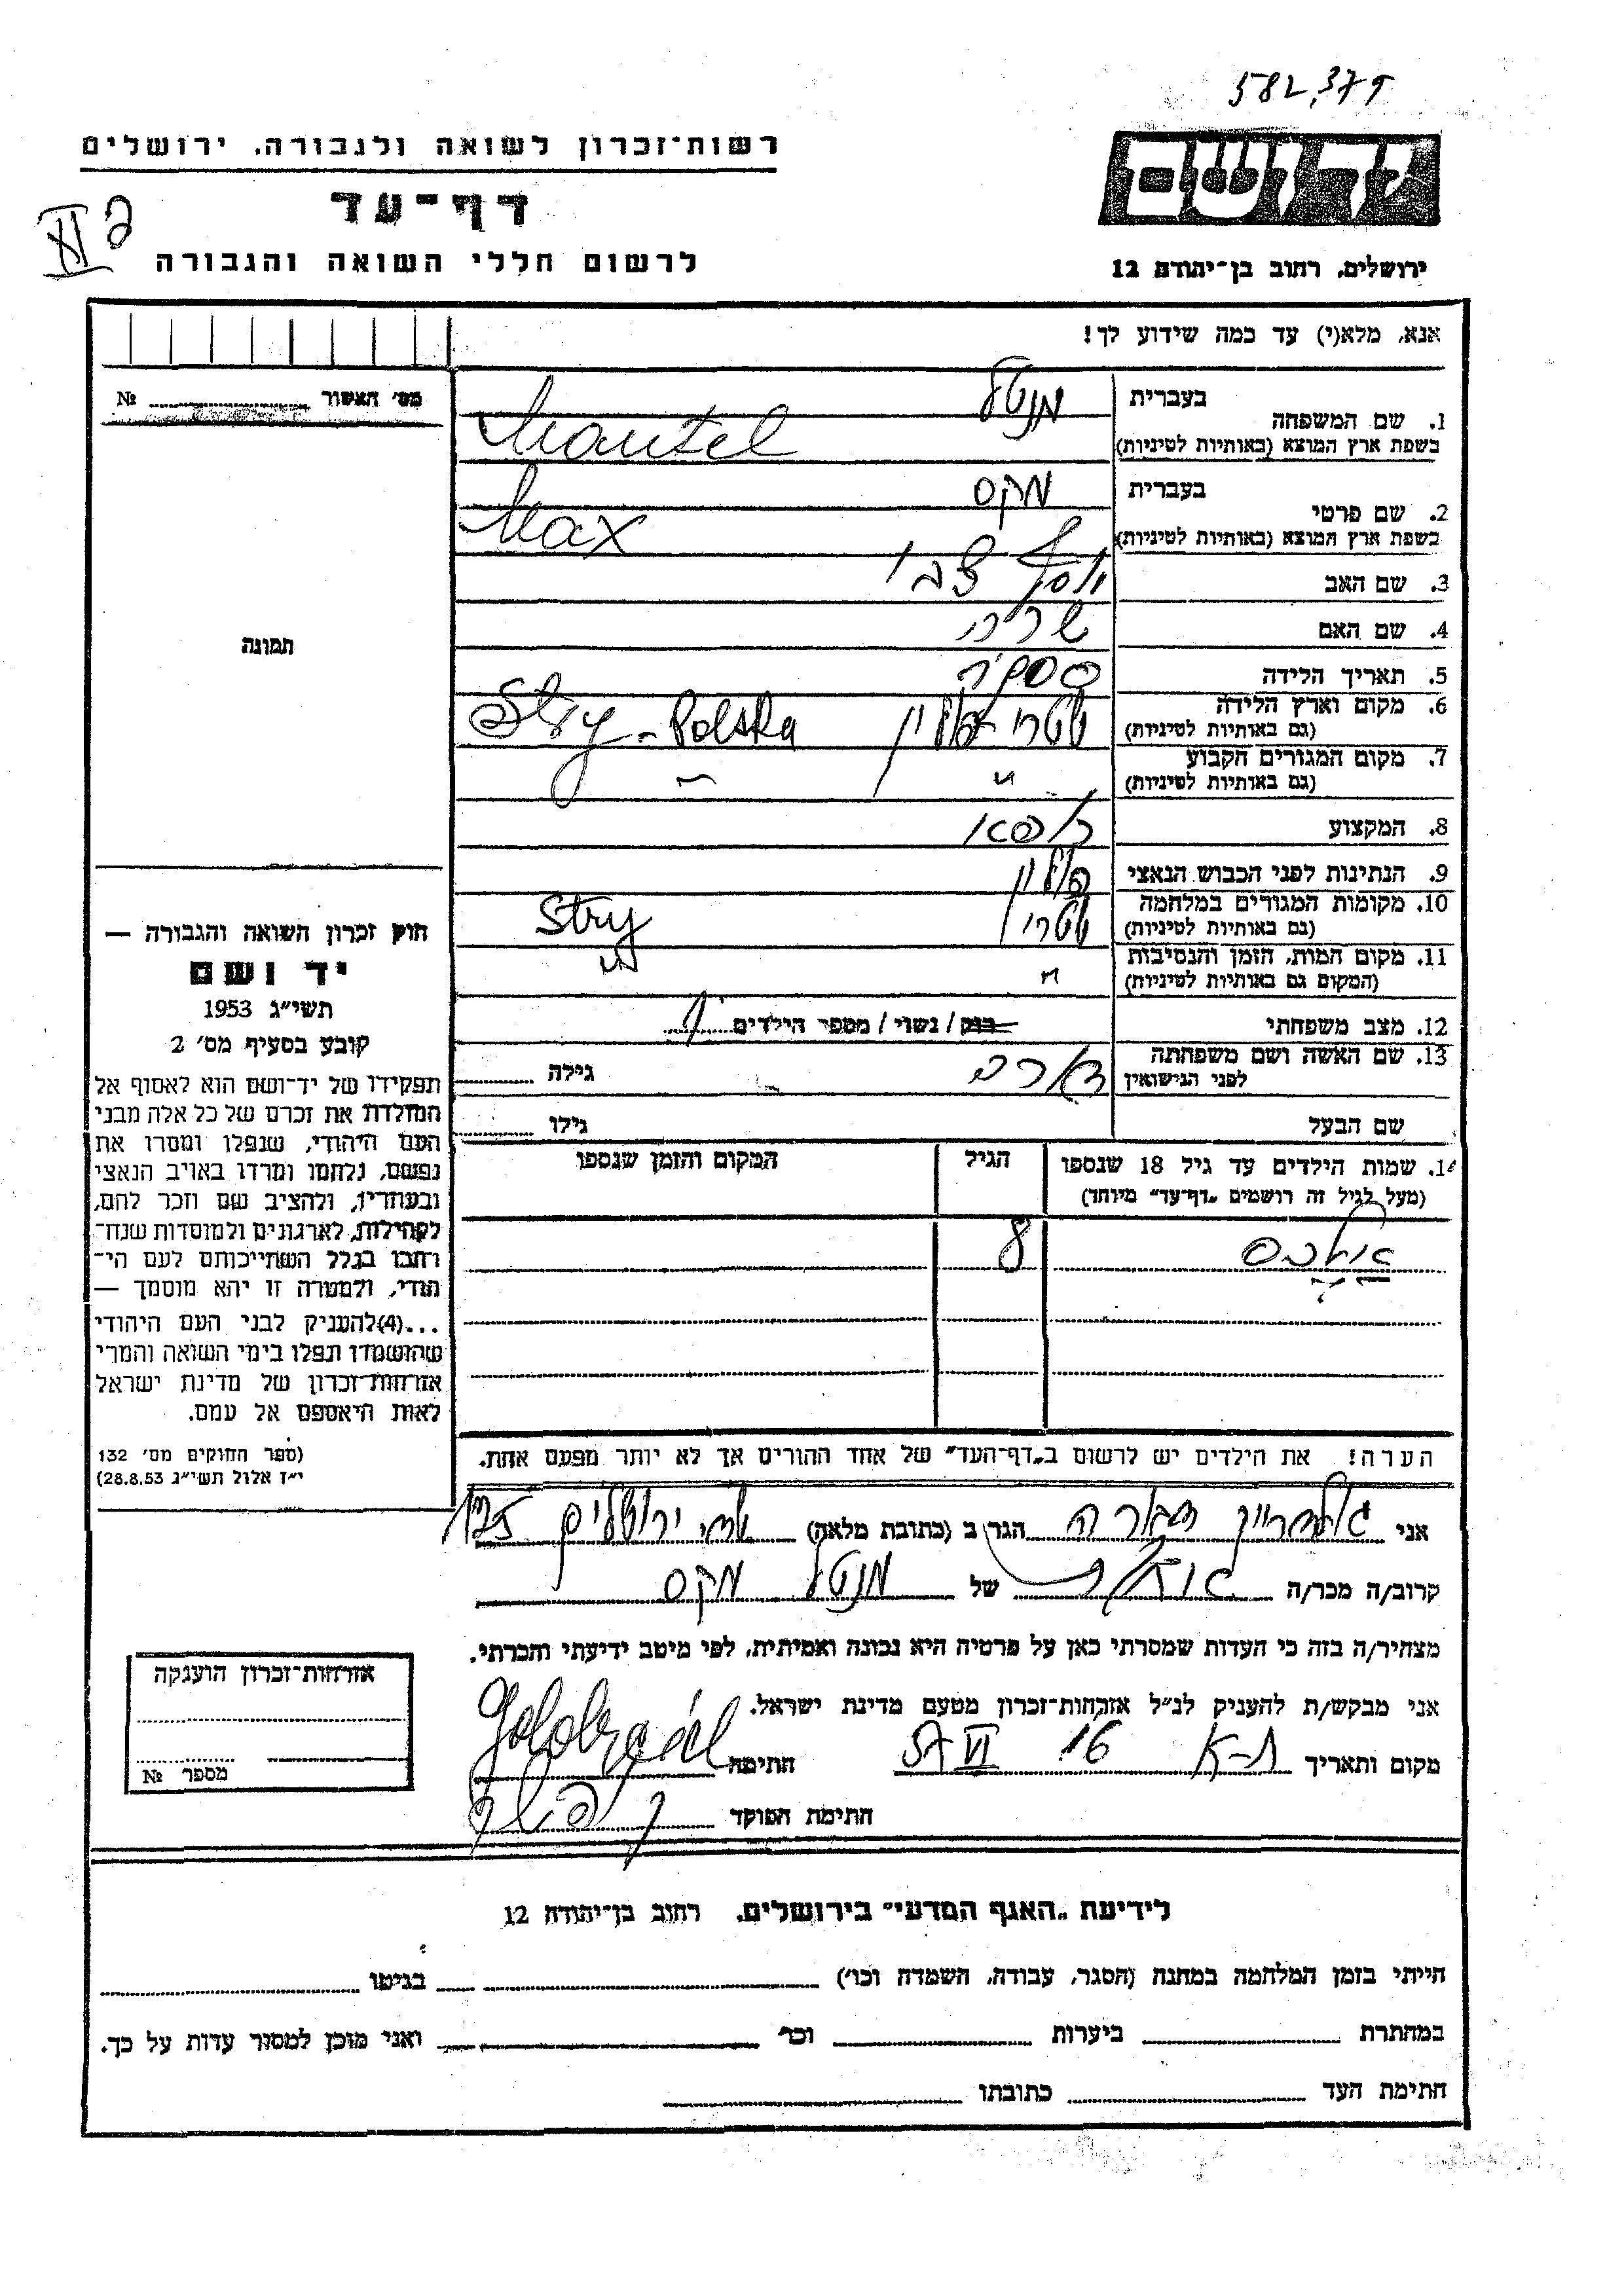 582,379
רשות־זכרון לשואה ולגבורה. ירושלים
דף־עד
לרשום חללי השואה והגבורה
יד ושם
ירושלים. רחוב בן־יהודה 12
אנא, מלא(י) עד כמה שידוע לך!
מס׳ האשור № 
תמונה
1. שם המשפחה
בעברית מנטל
בשפת ארץ המוצא (באותיות לטיניות) Mantel
2. שם פרטי
בעברית מקס
בשפת ארץ המוצא (באותיות לטיניות) Max
3. שם האב יוסף צבי
4. שם האם שרה
5. תאריך הלידה
6. מקום וארץ הלידה סטרי פולין Stry - Polska
(גם באותיות לטיניות)
7. מקום המגורים הקבוע " "
(גם באותיות לטיניות)
8. המקצוע רופא
9. הנתינות לפני הכבוש הנאצי פולין
10. מקומות המגורים במלחמה סטרי Stry
(גם באותיות לטיניות)
11. מקום המות, הזמן והנסיבות " "
(המקום גם באותיות לטיניות)
12. מצב משפחתי רווק / נשוי / מספר הילדים
13. שם האשה ושם משפחתה
לפני הנישואין
גילה
שם הבעל
גילו
14. שמות הילדים עד גיל 18 שנספו
(מעל לגיל זה רושמים „דף־עד״ מיוחד)
הגיל
המקום והזמן שנספו
8
הערה! את הילדים יש לרשום ב„דף־העד״ של אחד ההורים אך לא יותר מפעם אחת.
חוק זכרון השואה והגבורה —
יד ושם
תשי״ג 1953
קובע בסעיף מס׳ 2
תפקידו של יד־ושם הוא לאסוף אל
המולדת את זכרם של כל אלה מבני
העם היהודי, שנפלו ומסרו את
נפשם, נלחמו ומרדו באויב הנאצי
ובעוזריו, ולהציב שם וזכר להם,
לקהילות, לארגונים ולמוסדות שנח־
רבו בגלל השתייכותם לעם הי־
הודי, ולמטרה זו יהא מוסמך —
...(4)להעניק לבני העם היהודי
שהושמדו ונפלו בימי השואה והמרי
אזרחות־זכרון של מדינת ישראל
לאות היאספם אל עמם.
(ספר החוקים מס׳ 132
י״ז אלול תשי״ג 28.8.53)
אני הגר ב (כתובת מלאה) שד׳ ירושלים
קרוב/ה מכר/ה של מנטל מקס
מצהיר/ה בזה כי העדות שמסרתי כאן על פרטיה היא נכונה ואמיתית, לפי מיטב ידיעתי והכרתי.
אני מבקש/ת להעניק לנ״ל אזרחות־זכרון מטעם מדינת ישראל.
מקום ותאריך ת-א 16 VI 57 חתימה
חתימת הפוקד
אזרחות־זכרון הוענקה
מספר №
לידיעת „האגף המדעי״ בירושלים. רחוב בן־יהודה 12
הייתי בזמן המלחמה במחנה (הסגר, עבודה, השמדה וכו׳) בגיטו
במחתרת ביערות וכו׳ ואני מוכן למסור עדות על כך.
חתימת העד כתובתו